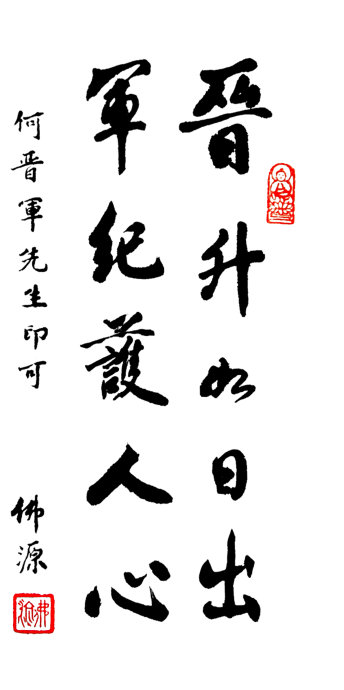 晉升如日出
軍紀護人心
何晋軍先生印可
佛源